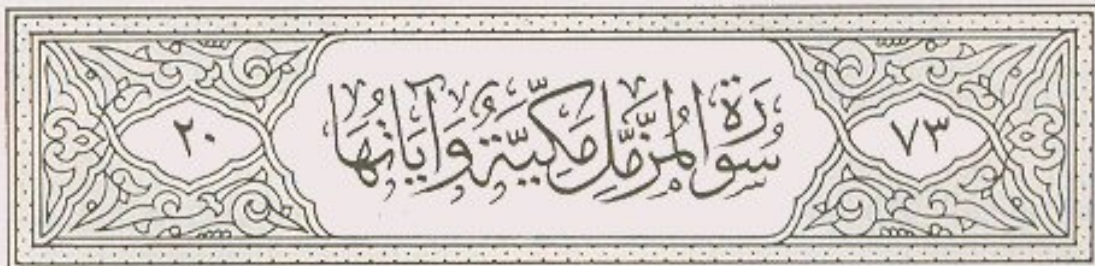 ٧٣ سُورَةُ الْمُزَّمِّلِ مَكِّيَّةٌ وَآيَاتُهَا ٢٠